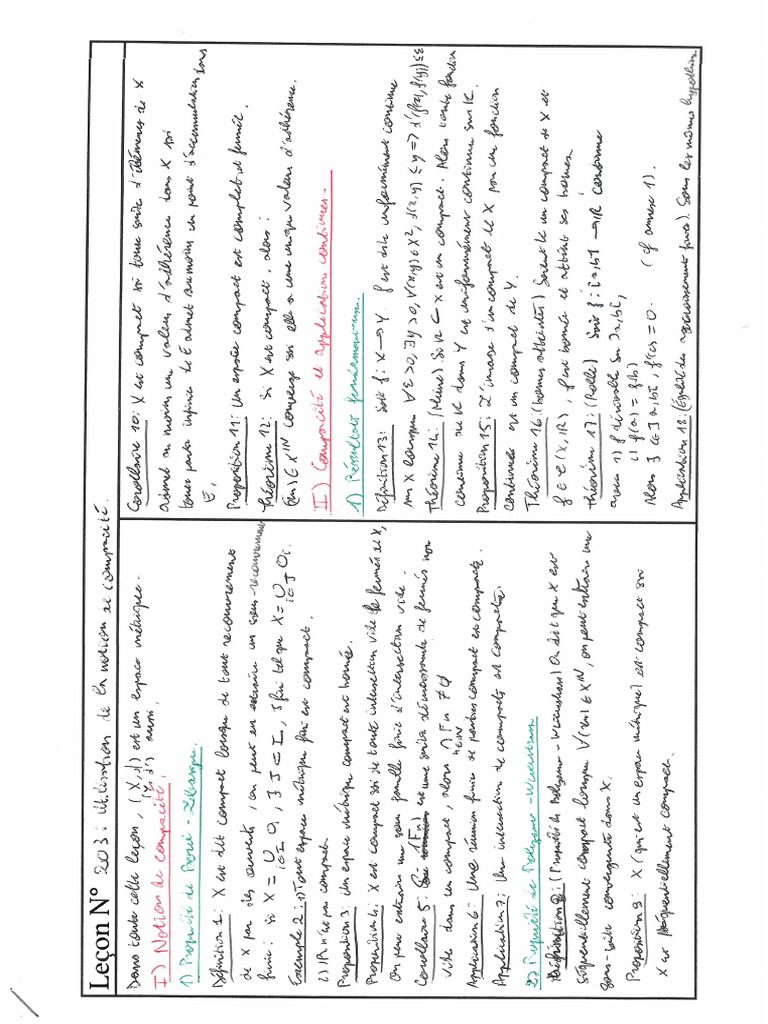 Leçon N° 203 : Utilisation de la notion de compacité.
Dans toute cette leçon, (X,d) est un espace métrique.
(Y,d') aussi,
I) Notion de compacité,
1) Propriété de Borel-Lebesgue.
Définition 1 : X est dit compact lorsque de tout recouvrement
de X par des ouverts, on peut en extraire un sous-recouvrement
fini : si X = ∪ Oi, ∃ J ⊂ I, J fini tel que X = ∪ Oi.
i∈I i∈J
Exemple 2 : 1) Tout espace métrique fini est compact.
2) IR n'est pas compact.
Proposition 3 : Un espace métrique compact est borné.
Proposition 4 : X est compact ssi de toute intersection vide de fermés de X,
on peut extraire une sous famille finie d'intersection vide.
Corollaire 5 : (Fn) est une suite décroissante de fermés non
vide dans un compact, alors ∩ Fn ≠ ∅
n∈IN
Application 6 : Une réunion finie de parties compact est compacte.
Application 7 : Une intersection de compacts est compacte.
2) Propriété de Bolzano-Weierstrass
Définition 8 : (Propriété de Bolzano-Weierstrass) On dit que X est
séquentiellement compact lorsque ∀(xn) ∈ X^IN, on peut extraire une
sous-suite convergente dans X.
Proposition 9 : X (qui est un espace métrique) est compact ssi
X est séquentiellement compact.
Corollaire 10 : X est compact ssi toute suite d'éléments de X
admet au moins une valeur d'adhérence dans X ssi
toute partie infinie de E admet au moins un point d'accumulation dans
E,
Proposition 11 : Un espace compact est complet et fermé.
Théorème 12 : Si X est compact, alors :
(xn) ∈ X^IN converge ssi elle a une unique valeur d'adhérence.
II) Compacité et applications continues.
1) Résultats fondamentaux.
Définition 13 : Soit f : X → Y. f est dite uniformément continue
sur X lorsque ∀ε>0, ∃η>0, ∀(x,y) ∈ X², d(x,y) ≤ η => d'(f(x),f(y)) ≤ ε
Théorème 14 : (Heine) Si K ⊂ X est un compact. Alors toute fonction
continue sur K dans Y est uniformément continue sur K.
Proposition 15 : L'image d'un compact de X par une fonction
continue est un compact de Y.
Théorème 16 : (bornes atteintes) Soient K un compact de X et
f ∈ C(X, IR), f est bornée et atteint ses bornes.
Théorème 17 : (Rolle) Soit f : [a,b] → IR continue
avec 1) f dérivable sur ]a,b[,
2) f(a) = f(b)
Alors ∃ c ∈ ]a,b[, f'(c) = 0. (cf annexe 1).
Application 18 : (Égalité des accroissements finis). Sous les mêmes hypothèses